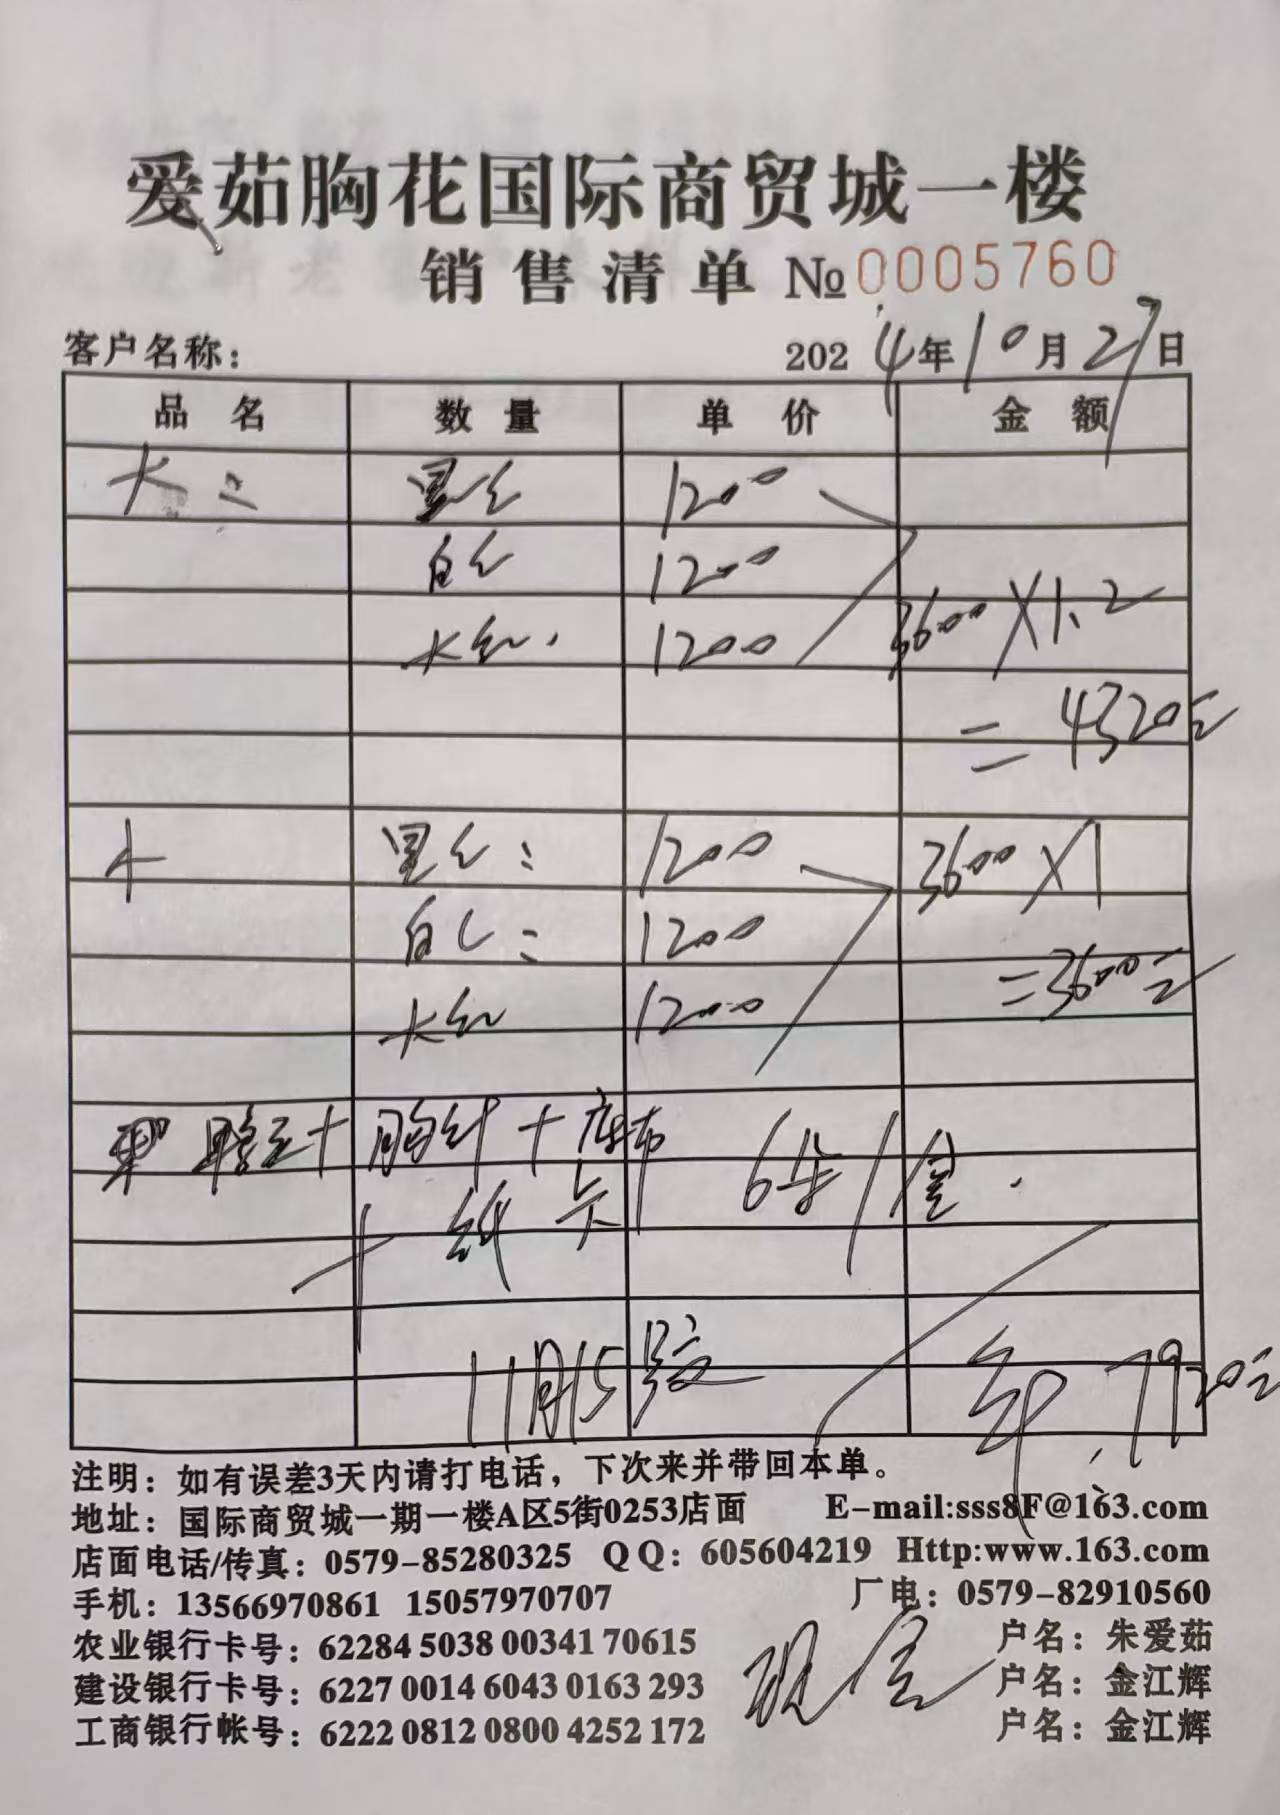 爱茹胸花国际商贸城一楼
销售清单 № 0005760
客户名称： 2024年10月27日
品名 数量 单价 金额
大 黑 1200
白 1200
大红 1200 3600×1.2
=4320元
黑 1200 3600×1
白 1200
大红 1200 =3600元
胸针+ 6朵/盒
+纸卡
11月15号交 7920元
注明：如有误差3天内请打电话，下次来并带回本单。
地址：国际商贸城一期一楼A区5街0253店面 E-mail:sss8F@163.com
店面电话/传真：0579-85280325 QQ：605604219 Http:www.163.com
手机：13566970861 15057970707 厂电：0579-82910560
农业银行卡号：62284 5038 00341 70615 户名：朱爱茹
建设银行卡号：6227 0014 6043 0163 293 户名：金江辉
工商银行帐号：6222 0812 0800 4252 172 户名：金江辉
现金